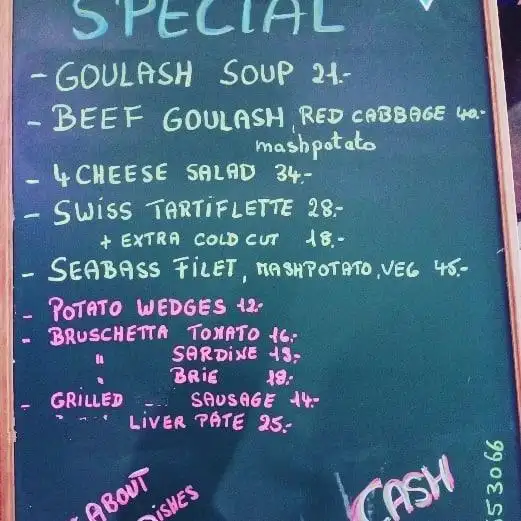 SPECIAL
- GOULASH SOUP 21.-
- BEEF GOULASH, RED CABBAGE 40.-
mashpotato
- 4 CHEESE SALAD 34.-
- SWISS TARTIFLETTE 28.-
+ EXTRA COLD CUT 18.-
- SEABASS FILET, MASHPOTATO, VEG 45.-
- POTATO WEDGES 12.-
- BRUSCHETTA TOMATO 16.-
" SARDINE 18.-
" BRIE 18.-
- GRILLED SAUSAGE 14.-
LIVER PATE 25.-
ABOUT
DISHES
CASH
53066